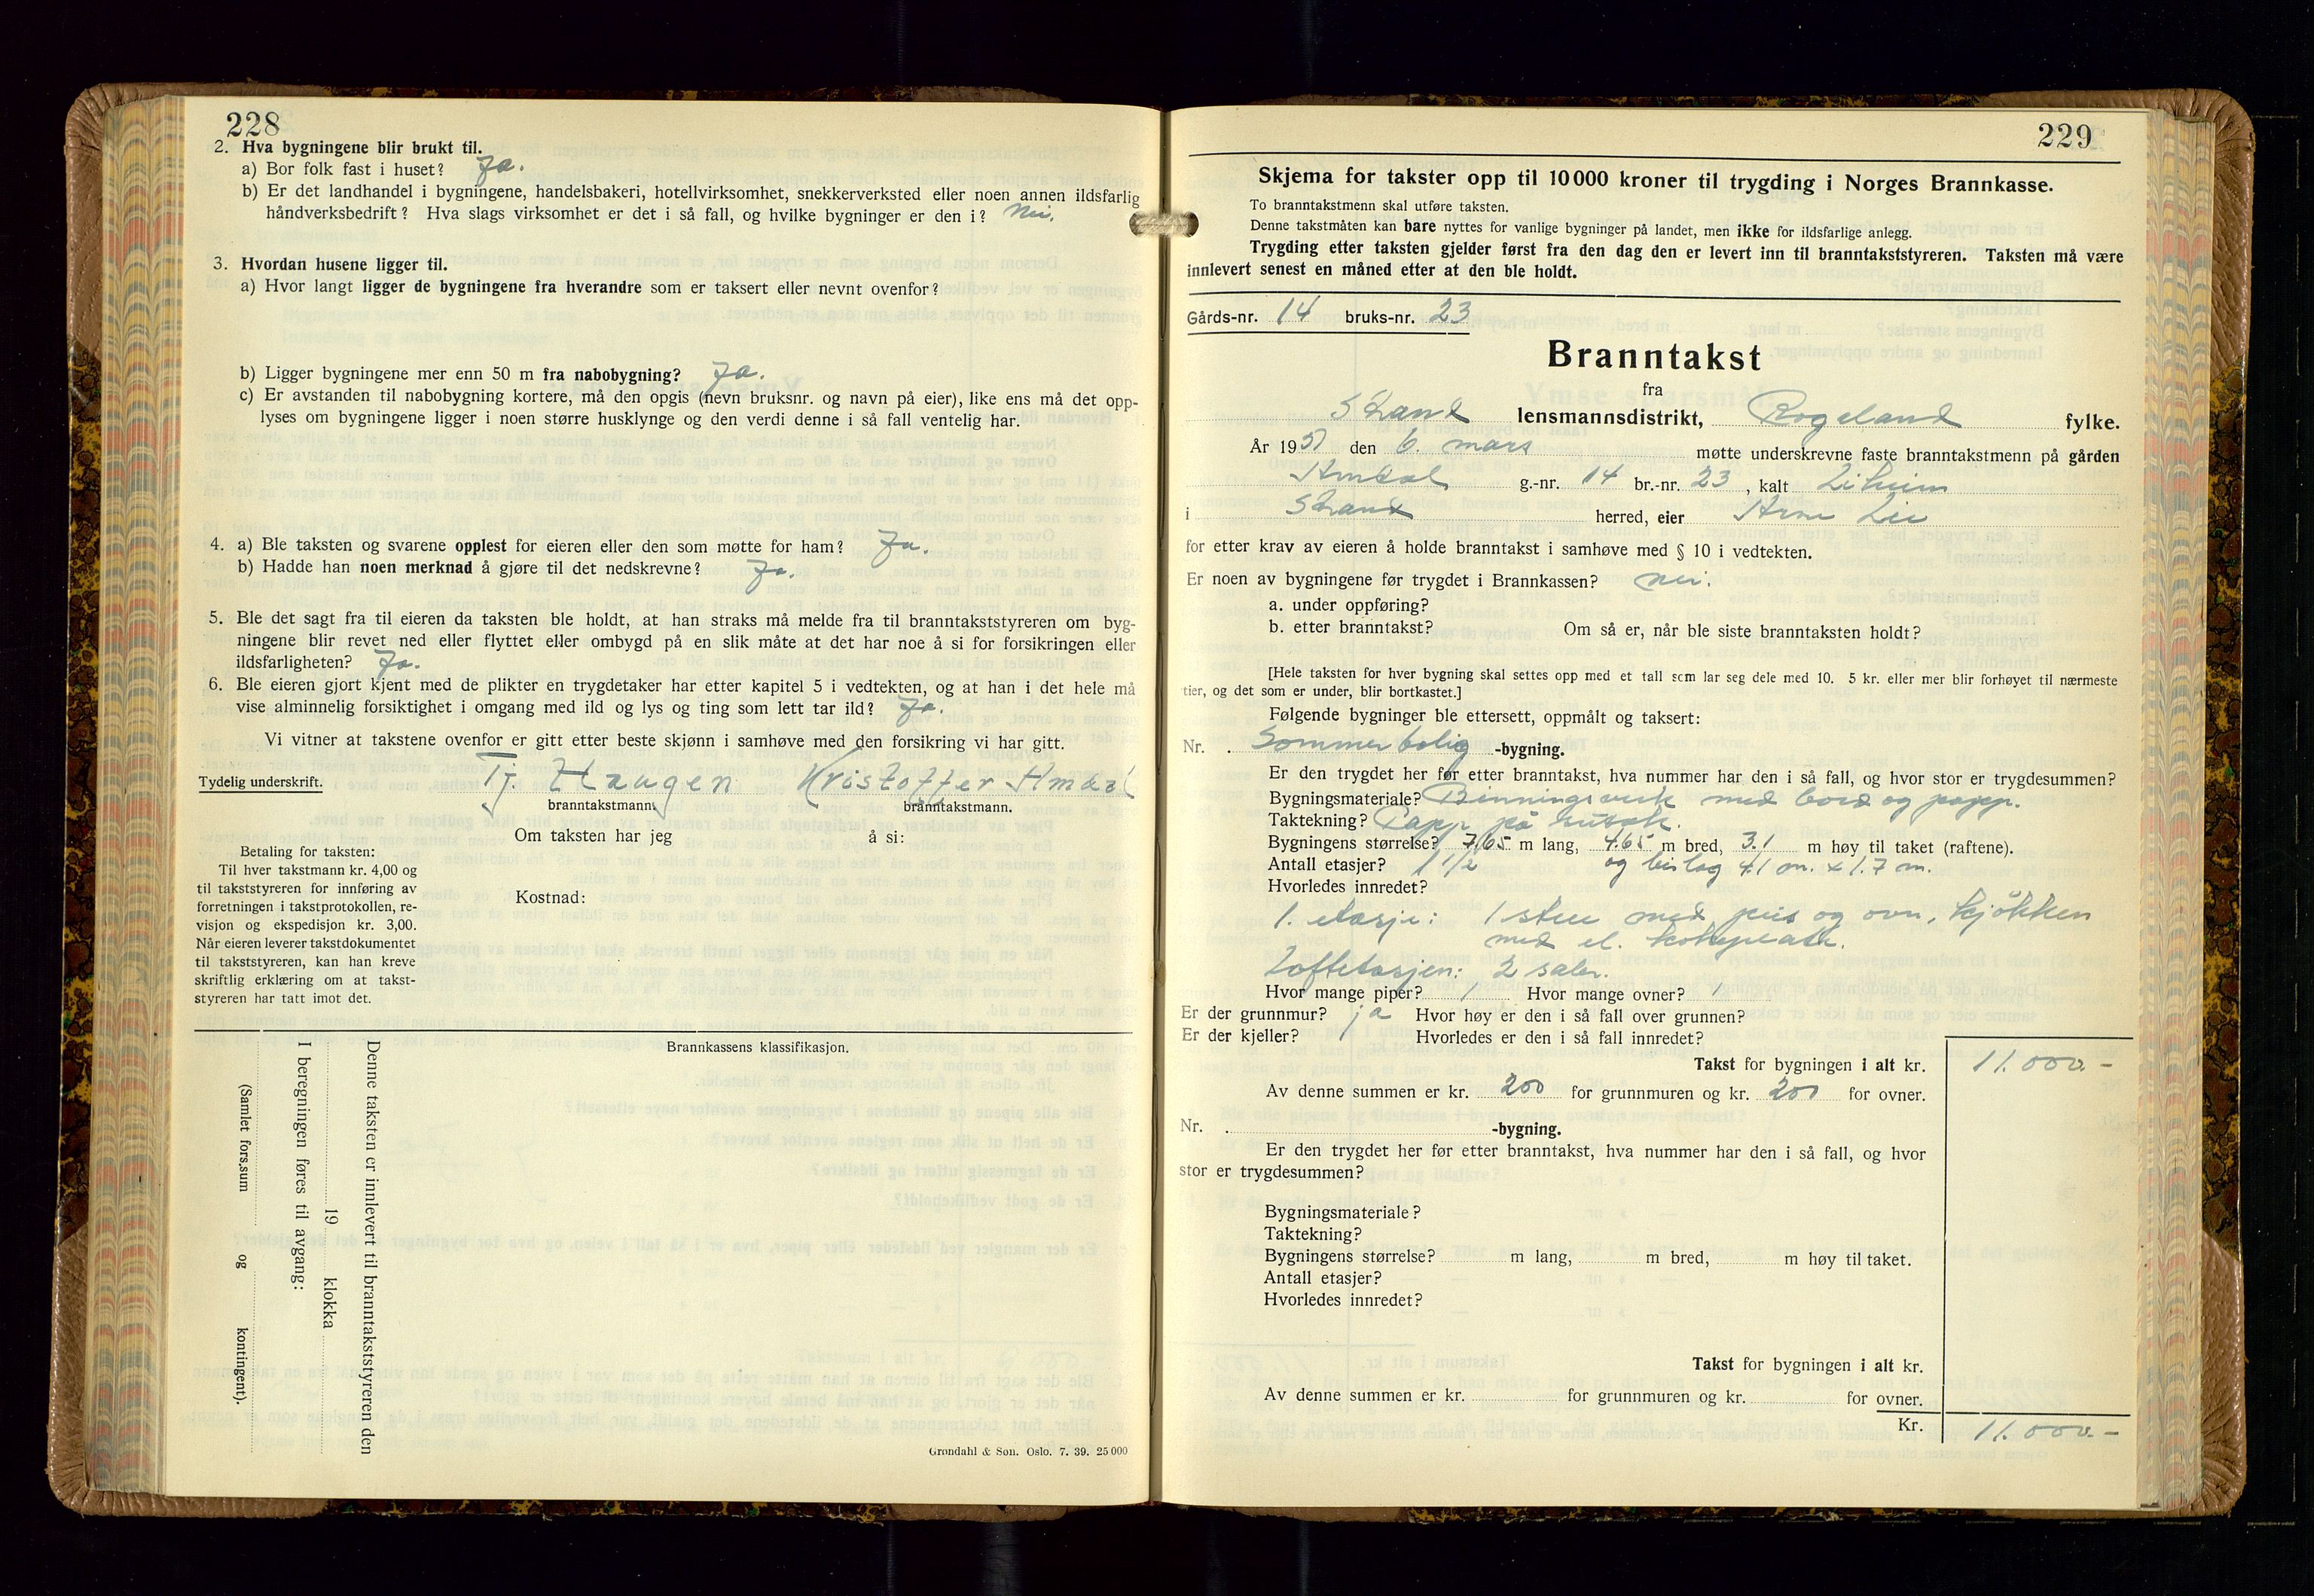 228
2. Hva bygningene blir brukt til.
a) Bor folk fast i huset? Ja.
b) Er det landhandel i bygningene, handelsbakeri, hotellvirksomhet, snekkerverksted eller noen annen ildsfarlig
håndverksbedrift? Hva slags virksomhet er det i så fall, og hvilke bygninger er den i? Nei.
3. Hvordan husene ligger til.
a) Hvor langt ligger de bygningene fra hverandre som er taksert eller nevnt ovenfor?
b) Ligger bygningene mer enn 50 m fra nabobygning? Ja.
c) Er avstanden til nabobygning kortere, må den opgis (nevn bruksnr. og navn på eier), like ens må det opp-
lyses om bygningene ligger i noen større husklynge og den verdi denne i så fall ventelig har.
4. a) Ble taksten og svarene opplest for eieren eller den som møtte for ham? Ja.
b) Hadde han noen merknad å gjøre til det nedskrevne? Ja.
5. Ble det sagt fra til eieren da taksten ble holdt, at han straks må melde fra til branntakststyreren om byg-
ningene blir revet ned eller flyttet eller ombygd på en slik måte at det har noe å si for forsikringen eller
ildsfarligheten? Ja.
6. Ble eieren gjort kjent med de plikter en trygdetaker har etter kapitel 5 i vedtekten, og at han i det hele må
vise alminnelig forsiktighet i omgang med ild og lys og ting som lett tar ild? Ja.
Vi vitner at takstene ovenfor er gitt etter beste skjønn i samhøve med den forsikring vi har gitt.
Tydelig underskrift. Tj. Haugen Kristoffer Amdal
branntakstmann. branntakstmann.
Om taksten har jeg å si:
Betaling for taksten:
Til hver takstmann kr. 4,00 og
til takststyreren for innføring av
forretningen i takstprotokollen, re-
visjon og ekspedisjon kr. 3,00.
Når eieren leverer takstdokumentet
til takststyreren, kan han kreve
skriftlig erklæring om at takst-
styreren har tatt imot det.
Kostnad:
Brannkassens klassifikasjon.
Denne taksten er innlevert til branntakststyreren den
19 klokka
I beregningen føres til avgang:
(Samlet fors.sum og kontingent).
Grøndahl & Søn. Oslo. 7. 39. 25 000
229
Skjema for takster opp til 10 000 kroner til trygding i Norges Brannkasse.
To branntakstmenn skal utføre taksten.
Denne takstmåten kan bare nyttes for vanlige bygninger på landet, men ikke for ildsfarlige anlegg.
Trygding etter taksten gjelder først fra den dag den er levert inn til branntakststyreren. Taksten må være
innlevert senest en måned etter at den ble holdt.
Gårds-nr. 14 bruks-nr. 23
Branntakst
fra
Strand lensmannsdistrikt, Rogaland fylke.
År 1951 den 6. mars møtte underskrevne faste branntakstmenn på gården
Amdal g.-nr. 14 br.-nr. 23, kalt Liheim
i Strand herred, eier Arne Lie
for etter krav av eieren å holde branntakst i samhøve med § 10 i vedtekten.
Er noen av bygningene før trygdet i Brannkassen? nei.
a. under oppføring?
b. etter branntakst? Om så er, når ble siste branntaksten holdt?
[Hele taksten for hver bygning skal settes opp med et tall som lar seg dele med 10. 5 kr. eller mer blir forhøyet til nærmeste
tier, og det som er under, blir bortkastet.]
Følgende bygninger ble ettersett, oppmålt og taksert:
Nr. . Sommerbolig -bygning.
Er den trygdet her før etter branntakst, hva nummer har den i så fall, og hvor stor er trygdesummen?
Bygningsmateriale? Binningsverk med bord og papp.
Taktekning? Papp på sutak.
Bygningens størrelse? 7,65 m lang, 4.65 m bred, 3.1 m høy til taket (raftene).
Antall etasjer? 1 1/2 og bislag 4.1 m. x 1.7 m.
Hvorledes innredet?
1. etasje: 1 stue med peis og ovn, kjøkken
med el. kokeplate.
Loftetasjen: 2 saler.
Hvor mange piper? 1 Hvor mange ovner? 1
Er der grunnmur? ja Hvor høy er den i så fall over grunnen?
Er der kjeller? Hvorledes er den i så fall innredet?
Takst for bygningen i alt kr. 11.000.-
Av denne summen er kr. 200 for grunnmuren og kr. 200 for ovner.
Nr. . -bygning.
Er den trygdet her før etter branntakst, hva nummer har den i så fall, og hvor
stor er trygdesummen?
Bygningsmateriale?
Taktekning?
Bygningens størrelse? m lang, m bred, m høy til taket.
Antall etasjer?
Hvorledes innredet?
Takst for bygningen i alt kr.
Av denne summen er kr. for grunnmuren og kr. for ovner.
Kr. 11.000.-